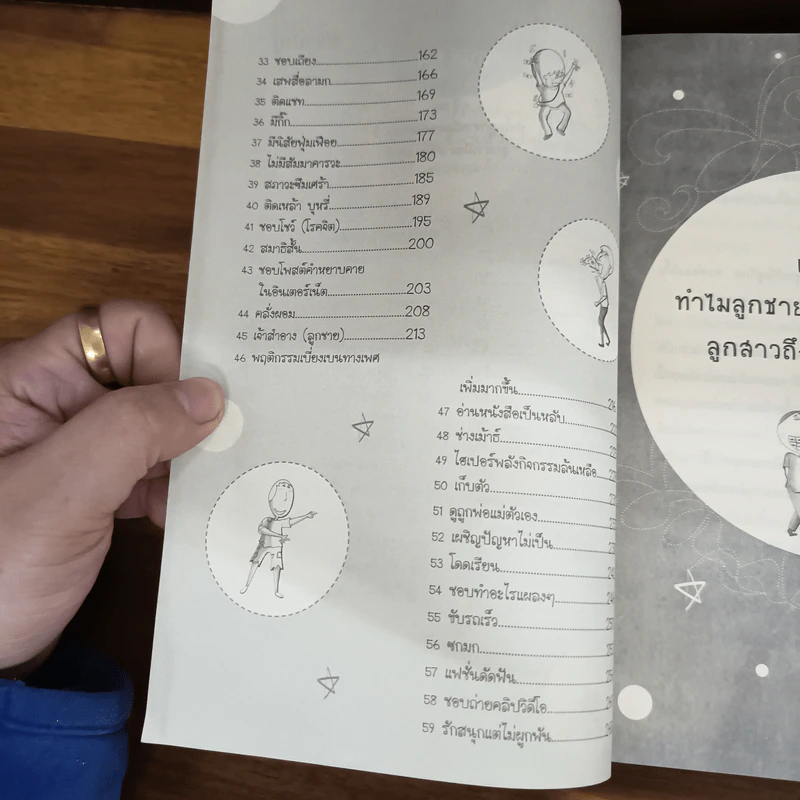 33 ชอบเถียง.....162
34 เสพสื่อลามก.....166
35 ติดแชท.....169
36 มีกิ๊ก.....173
37 มีนิสัยฟุ่มเฟือย.....177
38 ไม่มีสัมมาคารวะ.....180
39 สภาวะซึมเศร้า.....185
40 ติดเหล้า บุหรี่.....189
41 ชอบโชว์ (โรคจิต).....195
42 สมาธิสั้น.....200
43 ชอบโพสต์คำหยาบคาย
ในอินเตอร์เน็ต.....203
44 คลั่งผอม.....208
45 เจ้าสำอาง (ลูกชาย).....213
46 พฤติกรรมเบี่ยงเบนทางเพศ
เพิ่มมากขึ้น.....
47 อ่านหนังสือเป็นหลับ.....
48 ช่างเม้าธ์.....
49 ไฮเปอร์พลังกิจกรรมล้นเหลือ.....
50 เก็บตัว.....
51 ดูถูกพ่อแม่ตัวเอง.....
52 เผชิญปัญหาไม่เป็น.....
53 โดดเรียน.....
54 ชอบทำอะไรแผลงๆ.....
55 ขับรถเร็ว.....
56 ซกมก.....
57 แฟชั่นดัดฟัน.....
58 ชอบถ่ายคลิปวิดีโอ.....
59 รักสนุกแต่ไม่ผูกพัน.....
ทำไมลูกชาย
ลูกสาวถึง